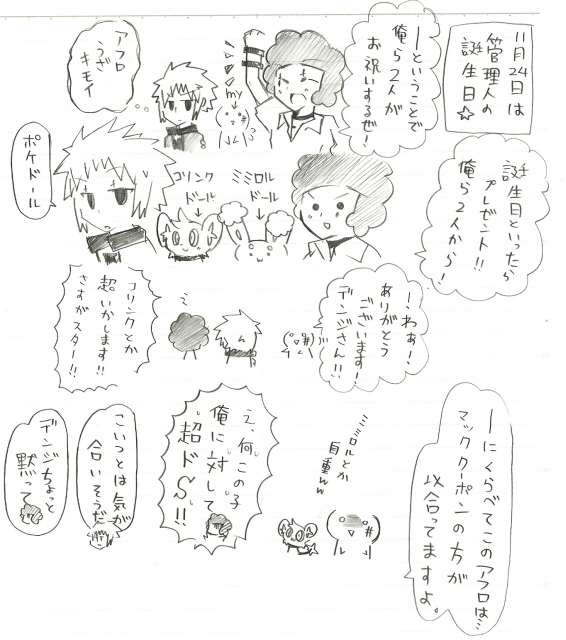 11月24日は
管理人の
誕生日☆
ーということで
俺ら2人が
お祝いするぜ!
my
アフロ
うざ
キモイ
誕生日といったら
プレゼント!!
俺ら2人から!
ミミロル
ドール
コリンク
ドール
ポケドール
!わぁ!
ありがとう
ございます!
デンジさん!!
コリンクとか
超いかします!!
さすがスター!!
ーにくらべてこのアフロは…
マッククーポンの方が
似合ってますよ。
ミミロルとか
自重ww
え、何この子
俺に対して
超ドS!!
こいつとは気が
合いそうだ
デンジちょっと
黙って